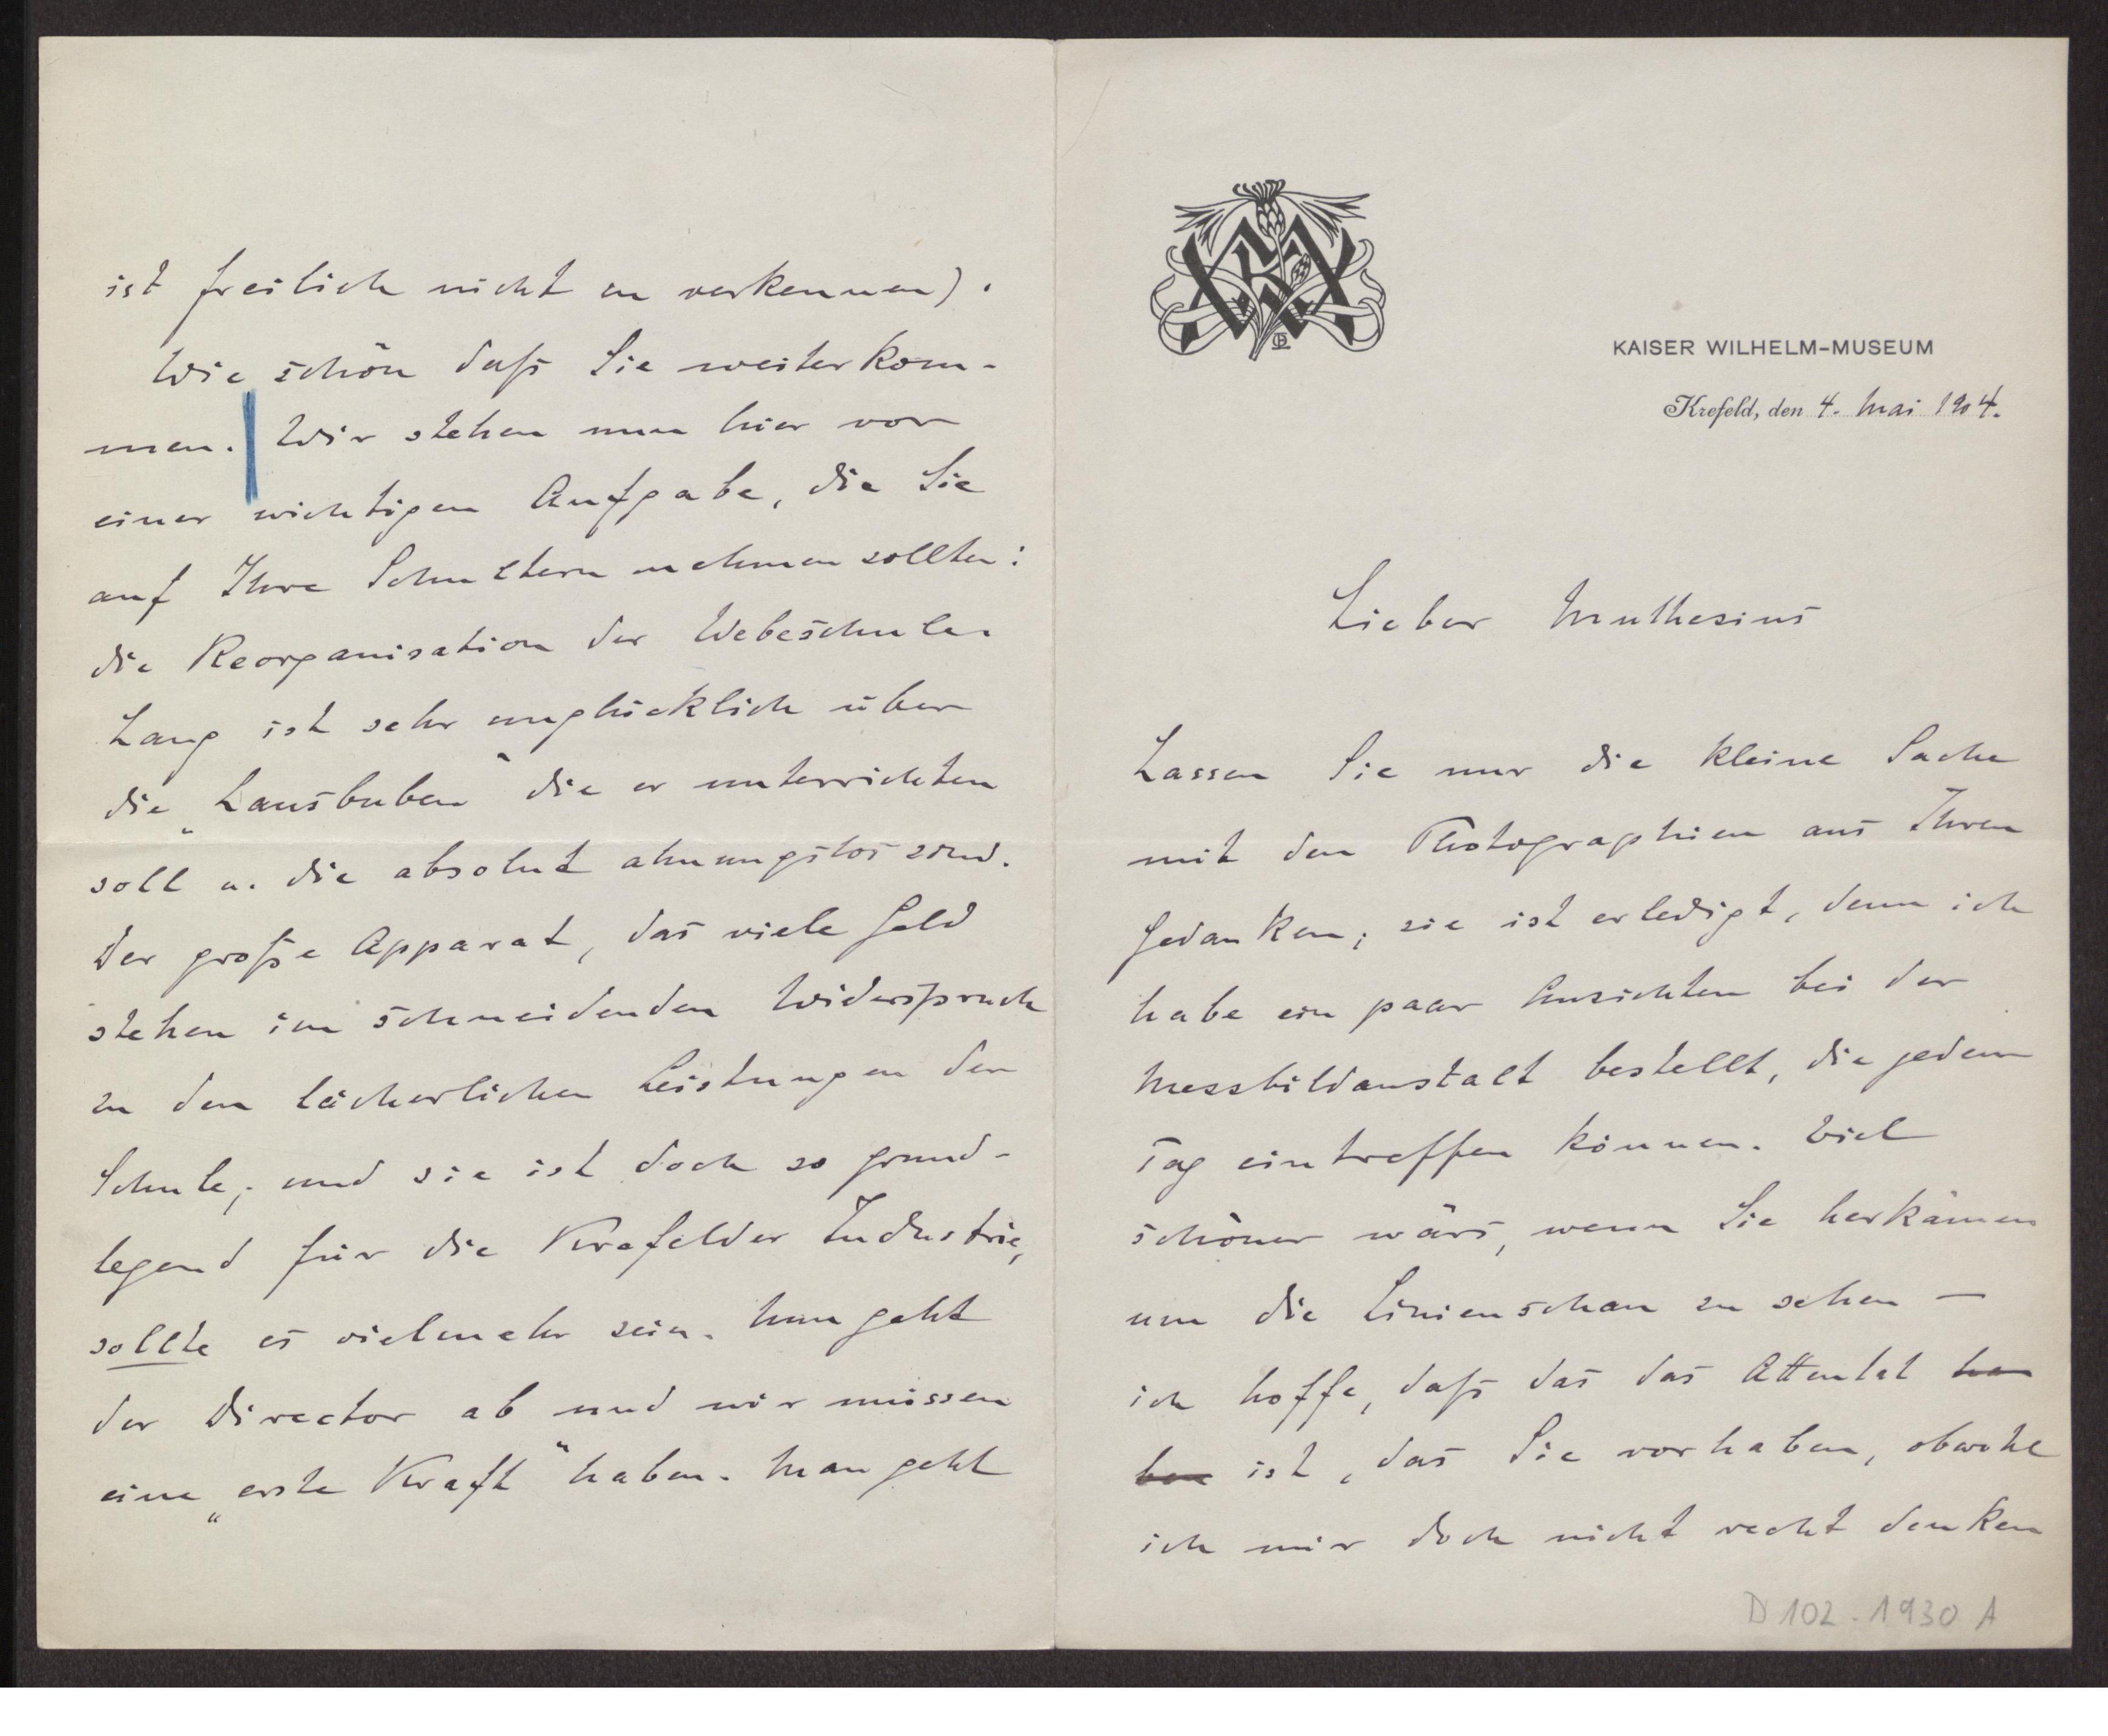 KAISER WILHELM-MUSEUM
Krefeld, den 4. Mai 1904.
Lieber Muthesius
Lassen Sie nur die kleine Sache
mit den Photographien aus Ihren
Gedanken; sie ist erledigt, denn ich
habe ein paar Ansichten bei der
Messbildanstalt bestellt, die jeden
Tag eintreffen können. Viel
schöner wärs, wenn Sie herkämen
um die Linienschau zu sehen —
ich hoffe, daß das das Attentat ha
ben ist, das Sie vorhaben, obwohl
ich mir doch nicht recht denken
D 102-1930 A
ist freilich nicht zu verkennen).
Wie schön daß Sie weiterkom-
men. Wir stehen nun hier vor
einer wichtigen Aufgabe, die Sie
auf Ihre Schultern nehmen sollten:
die Reorganisation der Webeschule.
Lang ist sehr unglücklich über
die „Lausbuben“ die er unterrichten
soll u. die absolut ahnungslos sind.
Der große Apparat, das viele Geld
stehen im schneidenden Widerspruch
zu den lächerlichen Leistungen der
Schule; und sie ist doch so grund-
legend für die Krefelder Industrie,
sollte es vielmehr sein. Nun geht
der Director ab und wir müssen
eine „erste Kraft“ haben. Man geht